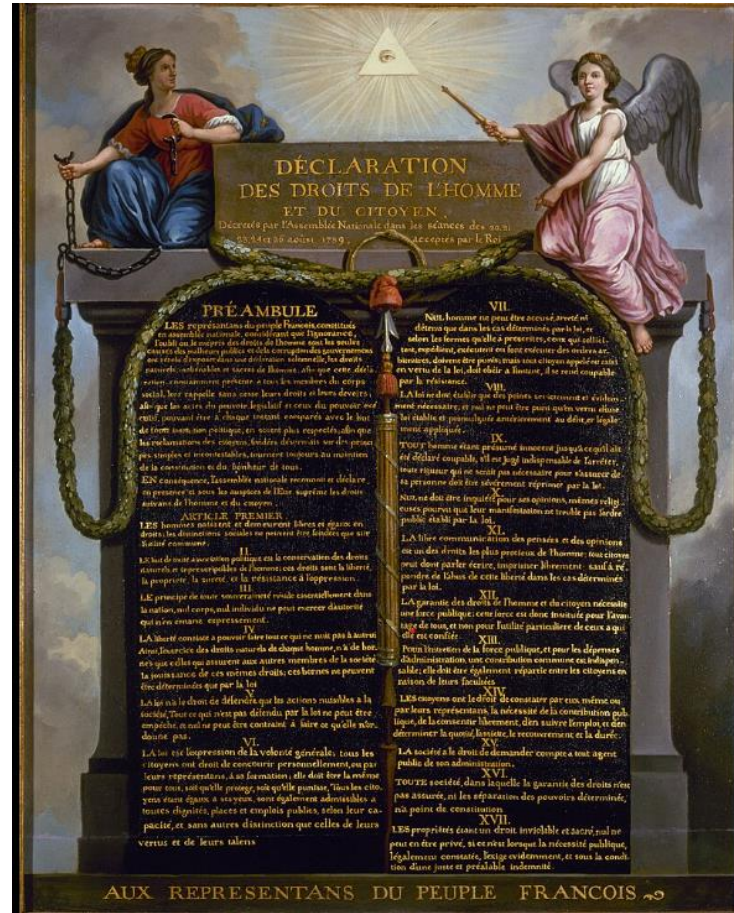 DÉCLARATION
DES DROITS DE L'HOMME
ET DU CITOYEN,
Décretés par l'Assemblée Nationale dans les séances des 20, 21
23, 24 et 26 aoûst 1789, acceptés par le Roi
PRÉAMBULE
LES représentans du peuple François, constitués
en assemblée nationale, considérant que l'ignorance,
l'oubli ou le mépris des droits de l'homme sont les seules
causes des malheurs publics et de la corruption des gouvernemens
ont résolu d'exposer dans une déclaration solemnelle, les droits
naturels, inaliénables et sacrés de l'homme, afin que cette décla
ration, constamment présente a tous les membres du corps
social, leur rappelle sans cesse leurs droits et leurs devoirs
afin que les actes du pouvoir législatif et ceux du pouvoir exé
cutif, pouvant être à chaque instant comparés avec le but
de toute institution politique, en soient plus respectés, afin que
les réclamations des citoyens, fondées désormais sur des princi
pes simples et incontestables, tournent toujours au maintien
de la constitution et du bonheur de tous.
EN conséquence, l'assemblée nationale reconnoit et déclare
en présence et sous les auspices de l'Etre suprême les droits
suivans de l'homme et du citoyen.
ARTICLE PREMIER
LES hommes naissent et demeurent libres et égaux en
droits; les distinctions sociales ne peuvent être fondées que sur
l'utilité commune.
II.
LE but de toute association politique est la conservation des droits
naturels et imprescriptibles de l'homme; ces droits sont la liberté,
la propriété, la sureté, et la résistance à l'oppression.
III.
LE principe de toute souveraineté réside essentiellement dans
la nation, nul corps, nul individu ne peut exercer d'autorité
qui n'en émane expressement.
IV
LA liberté consiste a pouvoir faire tout ce qui ne nuit pas à autrui
Ainsi, l'exercice des droits naturels de chaque homme, n'a de bor
nes que celles qui assurent aux autres membres de la société
la jouissance de ces mêmes droits; ces bornes ne peuvent
être déterminées que par la loi
V
LA loi n'a le droit de défendre que les actions nuisibles a la
société, Tout ce qui n'est pas défendu par la loi ne peut être
empêché, et nul ne peut être contraint à faire ce qu'elle n'or
donne pas.
VI.
LA loi est l'expression de la volonté générale; tous les
citoyens ont droit de concourir personnellement, ou par
leurs représentans, à sa formation; elle doit être la même
pour tous, soit qu'elle protege, soit qu'elle punisse, Tous les cito
yens étant égaux à ses yeux, sont également admissibles a
toutes dignités, places et emplois publics, selon leur ca
pacité, et sans autres distinction que celles de leurs
vertus et de leurs talens
VII.
NUL homme ne peut être accusé, arreté ni
détenu que dans les cas déterminés par la loi, et
selon les formes qu'elle à prescrites, ceux qui sollici
tent, expédient, exécutent ou font exécuter des ordres ar
bitraires, doivent être punis; mais tout citoyen appelé ou saisi
en vertu de la loi, doit obéir a l'instant, il se rend coupable
par la résistance.
VIII.
LA loi ne doit établir que des peines strictement et évidem
ment nécessaire, et nul ne peut être puni qu'en vertu d'une
loi établie et promulguée antérieurement au délit, et légale
ment appliquée.
IX.
TOUT homme étant présumé innocent jusqu'a ce qu'il ait
été déclaré coupable, s'il est jugé indispensable de l'arrêter,
toute rigueur qui ne serait pas nécessaire pour s'assurer de
sa personne doit être sévèrement réprimée par la loi.
X.
NUL ne doit être inquiété pour ses opinions, mêmes religi
euses pourvu que leur manifestation ne trouble pas l'ordre
public établi par la loi.
XI.
LA libre communication des pensées et des opinions
est un des droits les plus precieux de l'homme; tout citoyen
peut donc parler écrire, imprimer librement; sauf à ré
pondre de l'abus de cette liberté dans les cas déterminés
par la loi.
XII.
LA garantie des droits de l'homme et du citoyen nécessite
une force publique; cette force est donc instituée pour l'avan
tage de tous, et non pour l'utilité particuliere de ceux a qui
elle est confiée.
XIII.
Pour l'entretien de la force publique, et pour les dépenses
d'administration, une contribution commune est indispen
sable; elle doit être également répartie entre les citoyens en
raison de leurs facultées
XIV.
LES citoyens ont le droit de constater par eux même ou
par leurs représentans, la nécessité de la contribution pub
lique, de la consentir librement, d'en suivre l'emploi, et d'en
déterminer la quotité, l'assiette, le recouvrement et la durée.
XV.
LA société a le droit de demander compte a tout agent
public de son administration.
XVI.
TOUTE société, dans laquelle la garantie des droits n'est
pas assurée, ni les séparation des pouvoirs déterminée,
n'a point de constitution
XVII.
LES propriétés étant un droit inviolable et sacré, nul ne
peut en être privé, si ce n'est lorsque la nécessité publique,
légalement constatée, l'exige evidemment, et sous la condi
tion d'une juste et préalable indemnité.
AUX REPRESENTANS DU PEUPLE FRANCOIS